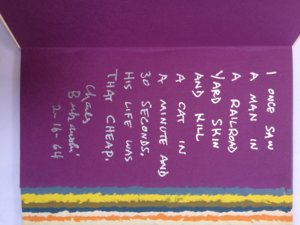 I ONCE SAW
A MAN IN
A RAILROAD
YARD SKIN
AND KILL
A CAT IN
A MINUTE AND
30 SECONDS.
HIS LIFE WAS
THAT CHEAP.
Charles
Bukowski
2-16-64